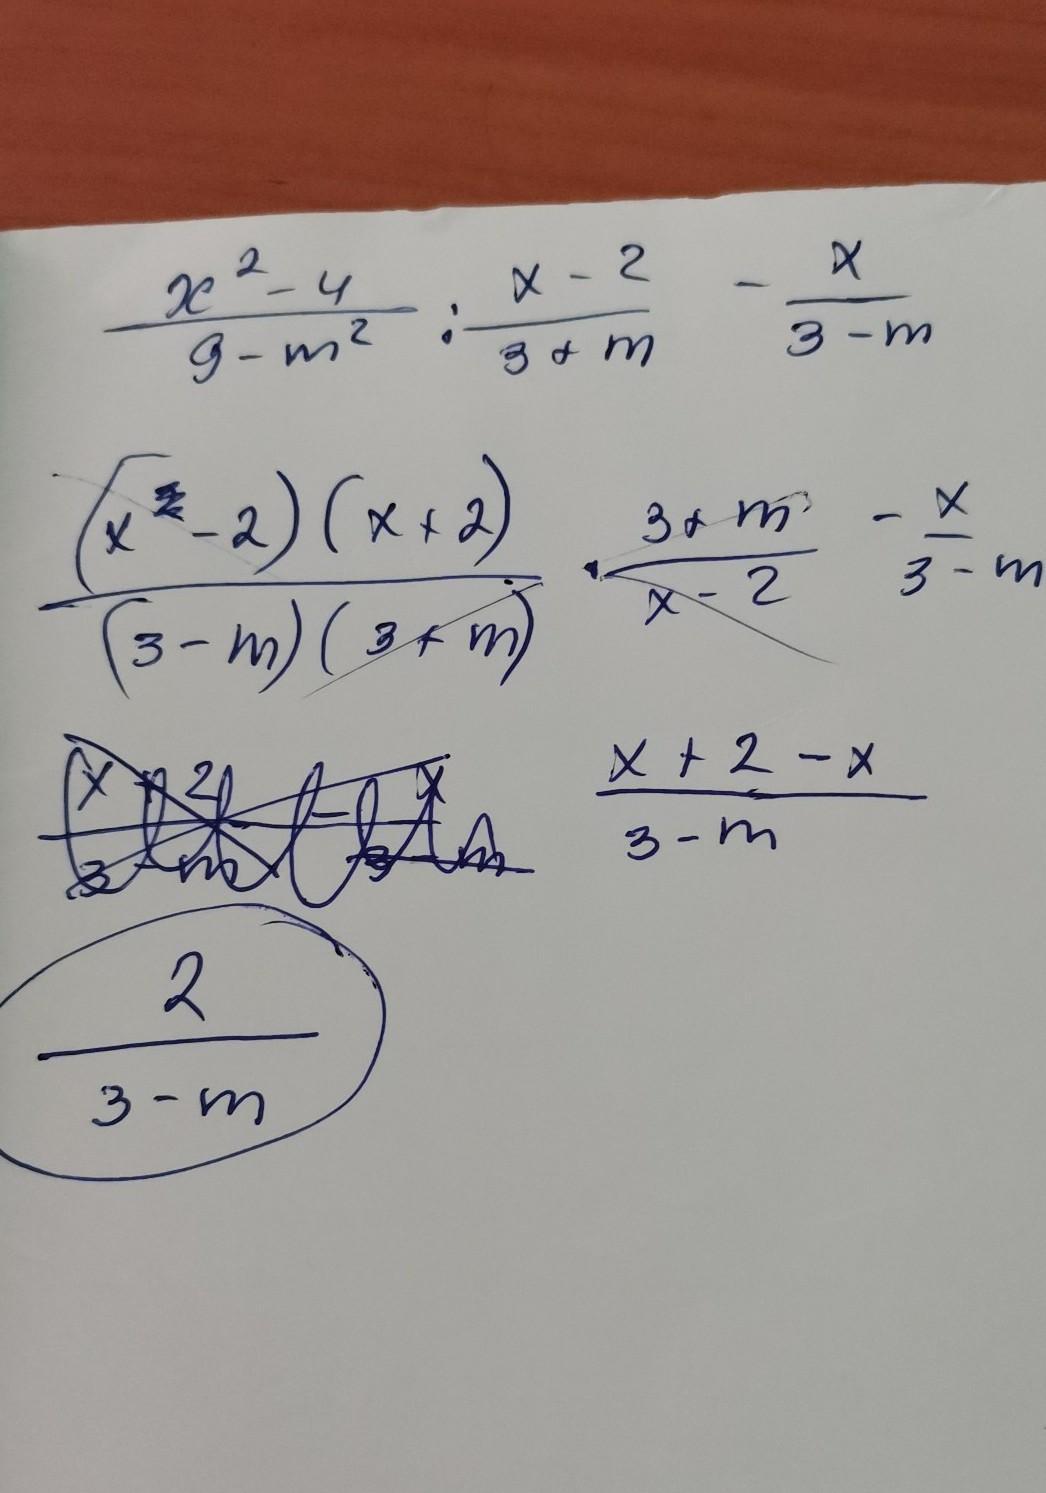 x² - 4 / 9 - m² : x - 2 / 3 + m - x / 3 - m
(x - 2)(x + 2) / (3 - m)(3 + m) · 3 + m / x - 2 - x / 3 - m
x + 2 - x / 3 - m
2 / 3 - m